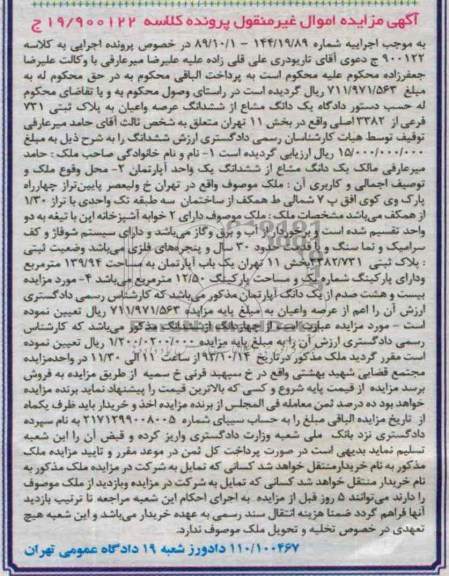 آگهی مزایده اموال غیرمنقول پرونده کلاسه ۱۹/۹۰۰۱۲۲ ج
به موجب اجراییه شماره ۱۴۴/۱۹/۸۹ – ۸۹/۱۰/۱ در خصوص پرونده اجرایی به کلاسه
۹۰۰۱۲۲ ج دعوی آقای تاریودری علی قلی زاده علیه علیرضا میرعارفی با وکالت علیرضا
جعفرزاده محکوم علیه محکوم است به پرداخت الباقی محکوم به در حق محکوم له به
مبلغ ۷۱۱/۹۷۱/۵۶۳ ریال گردیده است در راستای وصول محکوم به و یا تقاضای محکوم
له حسب دستور دادگاه یک دانگ مشاع از ششدانگ عرصه واعیان به پلاک ثبتی ۷۳۱
فرعی از ۳۳۸۲ اصلی واقع در بخش ۱۱ تهران متعلق به شخص ثالث آقای حامد میرعارفی
توقیف توسط هیات کارشناسان رسمی دادگستری ارزش ششدانگ را به شرح ذیل به مبلغ
۱۵/۰۰۰/۰۰۰/۰۰۰ ریال ارزیابی گردیده است ۱- نام و نام خانوادگی صاحب ملک : حامد
میرعارفی مالک یک دانگ مشاع از ششدانگ یک واحد آپارتمان ۲- محل وقوع ملک و
توصیف اجمالی و کاربری آن : ملک موصوف واقع در تهران خ ولیعصر پایین‌تراز چهارراه
پارک وی کوی افق پ ۷ شمالی ط همکف از ساختمان سه طبقه تک واحدی با تراز ۱/۳۰
از همکف می‌باشد مشخصات ملک : ملک موصوف دارای ۲ خوابه آشپزخانه اپن با تیغه به دو
واحد تقسیم شده است و برخوردار از آب و برق وگاز می‌باشد و دارای سیستم شوفاژ و کف
سرامیک و نما سنگ و با قدمت حدود ۳۰ سال و پنجره‌های فلزی می‌باشد وضعیت ثبتی
: پلاک ثبتی ۳۳۸۲/۷۳۱ بخش ۱۱ تهران یک باب آپارتمان به مساحت ۱۳۹/۹۴ مترمربع
ودارای پارکینگ شماره یک و مساحت پارکینگ ۱۲/۵۰ مترمربع می‌باشد ۴- مورد مزایده
بیست و هشت صدم از یک دانگ آپارتمان مذکور می‌باشد که کارشناس رسمی دادگستری
ارزش آن را اعم از عرصه واعیان به مبلغ پایه مزایده ۷۱۱/۹۷۱/۵۶۳ ریال تعیین نموده
است – مورد مزایده عبارت است از چهاردانگ از ششدانگ مذکور می‌باشد که کارشناس
رسمی دادگستری ارزش آن را به مبلغ پایه مزایده ۱/۲۰۰/۰۲۰۰/۰۰۰ ریال تعیین نموده
است مقرر گردید ملک مذکور درتاریخ ۹۳/۱۰/۱۴ از ساعت ۱۱ الی ۱۱/۳۰ در واحدمزایده
مجتمع قضایی شهید بهشتی واقع در خ سپهبد قرنی خ سمیه از طریق مزایده به فروش
برسد مزایده از قیمت پایه شروع و کسی که بالاترین قیمت را پیشنهاد نماید برنده مزایده
خواهد بود ده درصد ثمن معامله فی المجلس از برنده مزایده اخذ و خریدار باید ظرف یکماه
از تاریخ مزایده الباقی مبلغ را به حساب سیبای شماره ۲۱۷۱۲۹۹۰۰۸۰۰۵ به نام سپرده
دادگستری نزد بانک ملی شعبه وزارت دادگستری واریز کرده و قبض آن را این شعبه
تسلیم نماید بدیهی است در صورت پرداخت کل ثمن در موعد مقرر و تایید مزایده ملک
مذکور به نام خریدارمنتقل خواهد شد کسانی که تمایل به شرکت در مزایده ملک مذکور به
نام خریدار منتقل خواهد شد کسانی که تمایل به شرکت در مزایده وبازدید از ملک موصوف
را دارند می‌توانند ۵ روز قبل از مزایده به اجرای احکام این شعبه مراجعه تا ترتیب بازدید
آنها فراهم گردد ضمنا هزینه انتقال سند رسمی به عهده خریدار می‌باشد و این شعبه هیچ
تعهدی در خصوص تخلیه و تحویل ملک موصوف ندارد.
۱۱۰/۱۰۰۴۶۷ دادورز شعبه ۱۹ دادگاه عمومی تهران